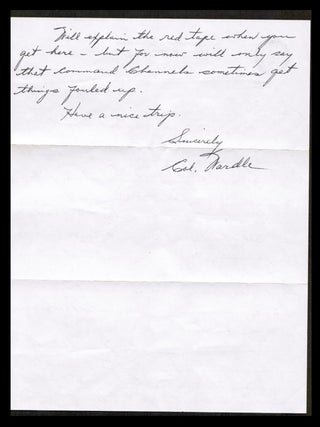 Will explain the red tape when you
get here - but for now will only say
that command Channels sometimes get
things fouled up.
Have a nice trip.
Sincerely
Col. Wardle